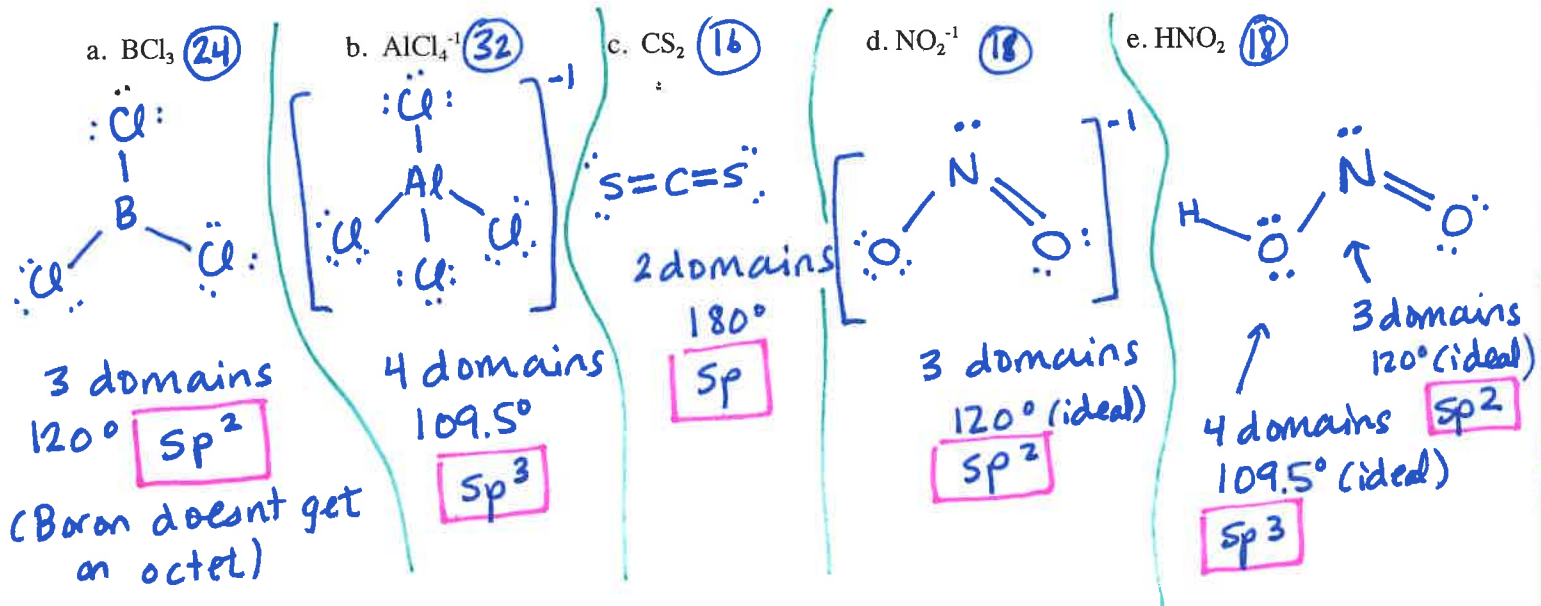 a. BCl₃ 24
:Cl:
B
Cl Cl:
3 domains
120° Sp²
(Boron doesnt get
an octet)
b. AlCl₄⁻¹ 32
:Cl: -1
Al
Cl Cl
:Cl:
4 domains
109.5°
Sp³
c. CS₂ 16
S=C=S
2 domains
180°
Sp
d. NO₂⁻¹ 18
-1
N
O O:
3 domains
120° (ideal)
Sp²
e. HNO₂ 18
N
H O O
3 domains
120° (ideal)
Sp2
4 domains
109.5° (ideal)
Sp3